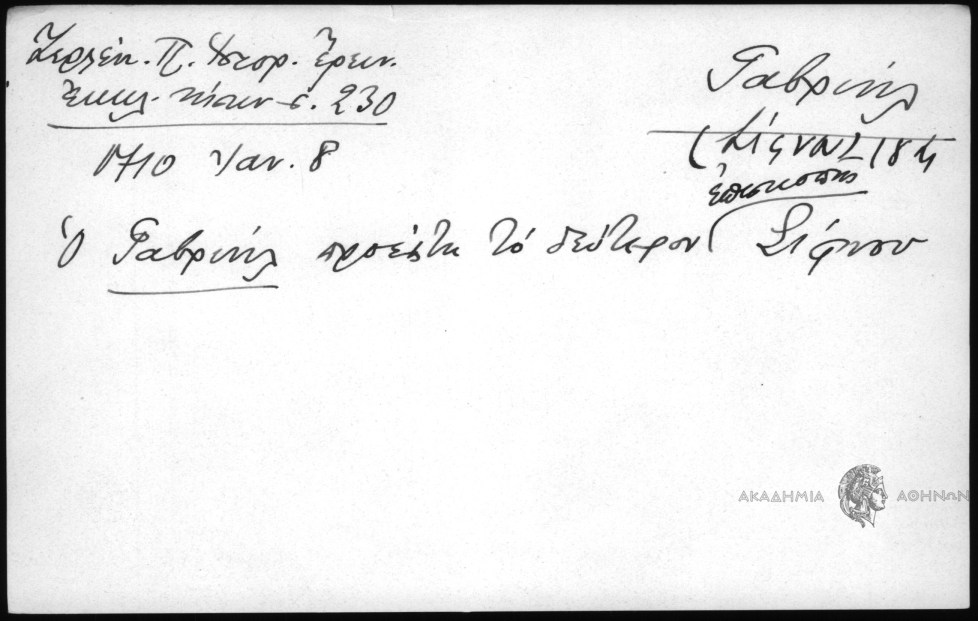 Ζερλέν. Π. Ἱστορ. Ἔρευν.
Ἐκκλ. νήσων σ. 230
1710 Ἰαν. 8
Γαβριήλ
(Σίφνου) 18
ἐπισκοπῆς
Ὁ Γαβριήλ προέστη τό δεύτερον Σίφνου
ΑΚΑΔΗΜΙΑ ΑΘΗΝΩΝ